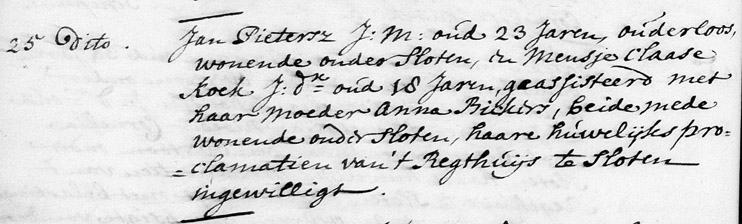 25 Dito. Jan Pietersz J: M: oud 23 Jaren, ouderloos,
wonende onder Sloten, en Mensje Claase
Koek J: dr. oud 18 Jaren, geassisteerd met
haar moeder Anna Bickers, beide mede
wonende onder Sloten, haare huwelijks pro-
=clamatien van't Regthuijs te Sloten
ingewilligt.